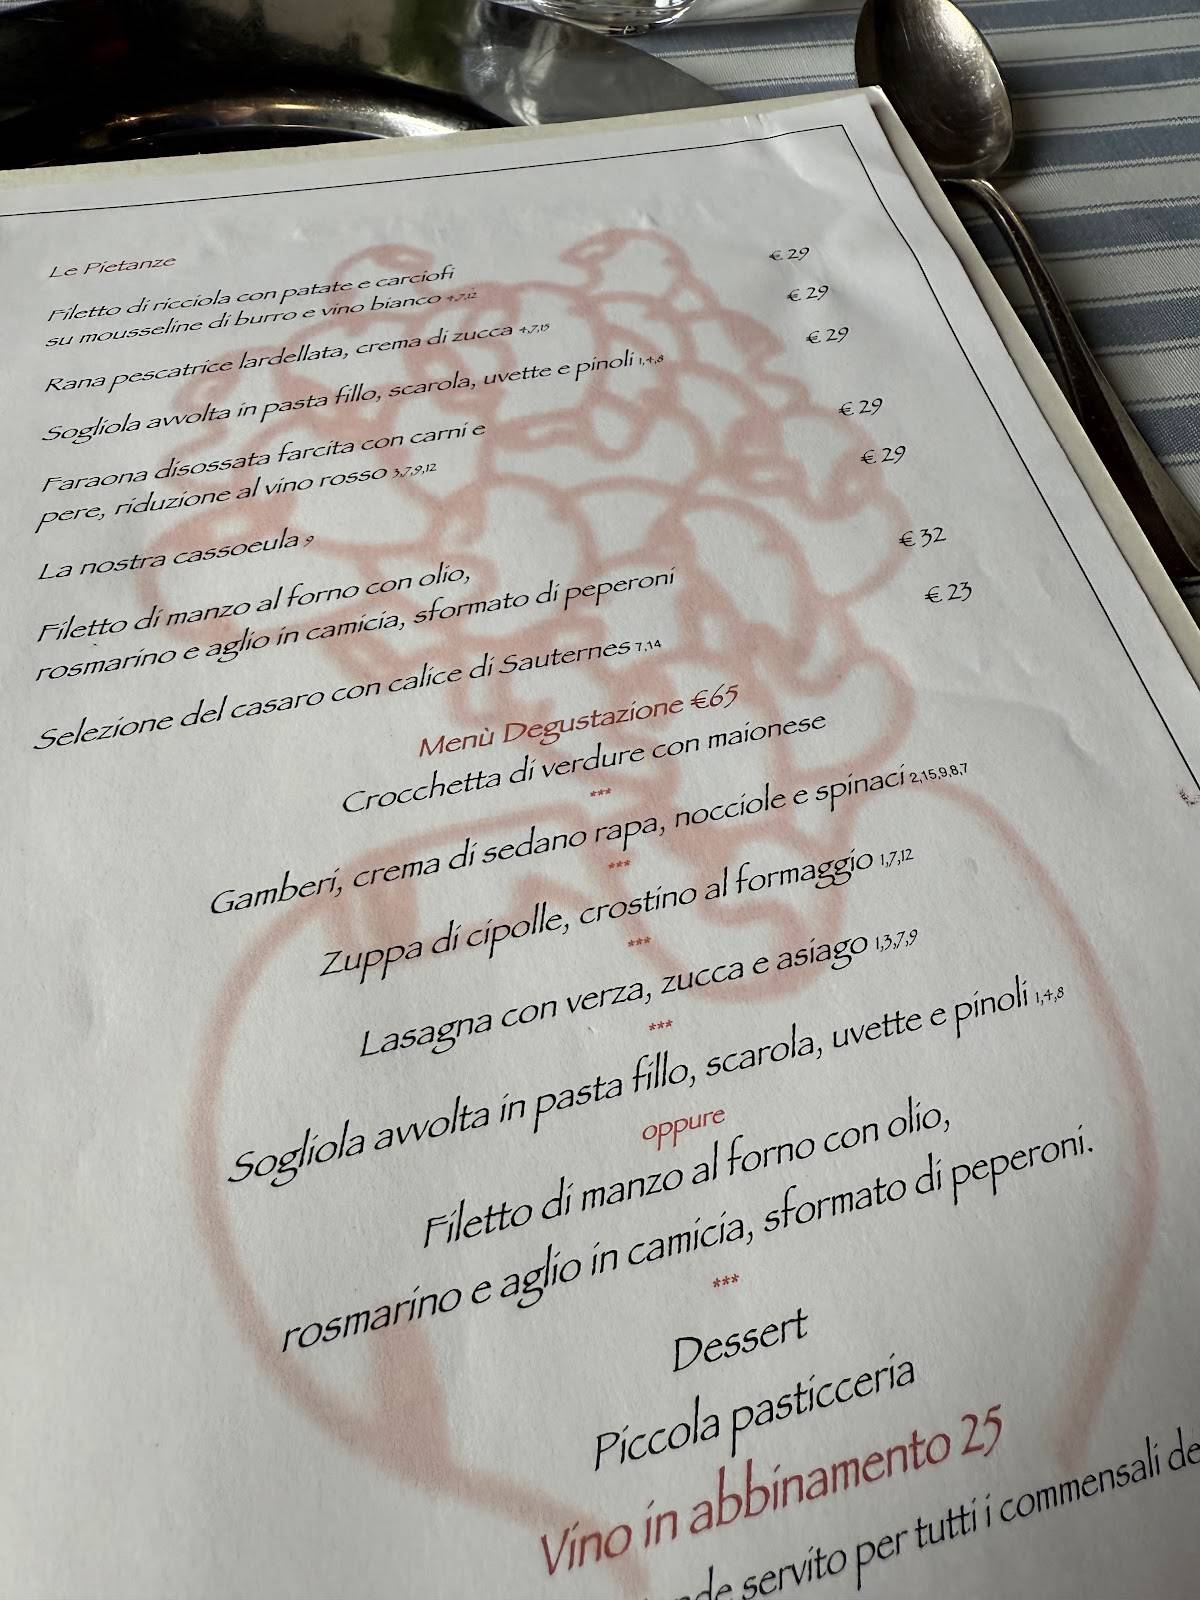 Le Pietanze
Filetto di ricciola con patate e carciofi € 29
su mousseline di burro e vino bianco 4,7,12
Rana pescatrice lardellata, crema di zucca 4,7,15 € 29
Sogliola avvolta in pasta fillo, scarola, uvette e pinoli 1,4,8 € 29
Faraona disossata farcita con carni e € 29
pere, riduzione al vino rosso 3,7,9,12
La nostra cassoeula 9 € 29
Filetto di manzo al forno con olio, € 32
rosmarino e aglio in camicia, sformato di peperoni
Selezione del casaro con calice di Sauternes 7,14 € 23
Menù Degustazione €65
Crocchetta di verdure con maionese
***
Gamberi, crema di sedano rapa, nocciole e spinaci 2,15,9,8,7
***
Zuppa di cipolle, crostino al formaggio 1,7,12
***
Lasagna con verza, zucca e asiago 1,3,7,9
***
Sogliola avvolta in pasta fillo, scarola, uvette e pinoli 1,4,8
oppure
Filetto di manzo al forno con olio,
rosmarino e aglio in camicia, sformato di peperoni.
***
Dessert
Piccola pasticceria
Vino in abbinamento 25
servito per tutti i commensali